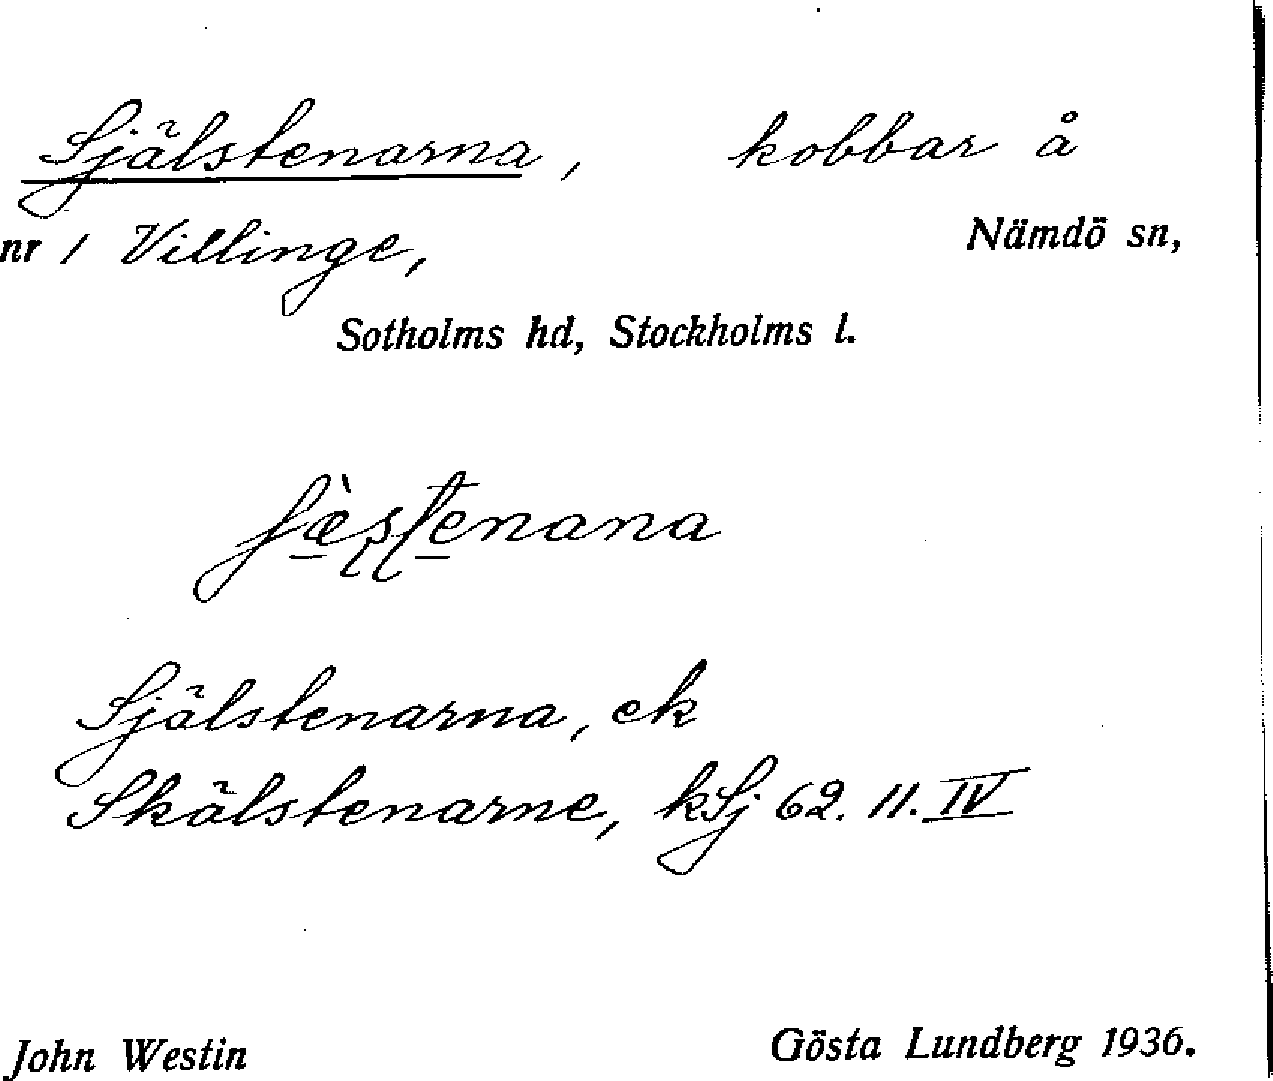 Själstenarna, kobbar å
nr 1 Villinge, Nämdö sn,
Sotholms hd, Stockholms l.
fæ̀stenana
Själstenarna, ek
Skälstenarne, kSj 62. 11. IV
John Westin Gösta Lundberg 1936.